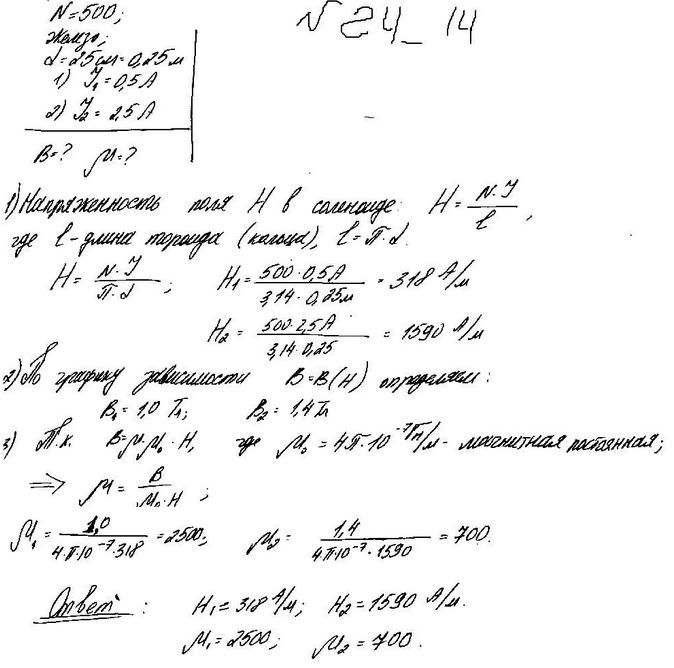 N=500;
№ 24_14
железо;
d=25см=0,25м
1) J₁=0,5 А
2) J₂=2,5 А
B=? μ=?
1) Напряженность поля H в соленоиде: H = N·J / l ,
где l - длина тороида (кольца), l=π·d.
H = N·J / π·d ; H₁ = 500·0,5А / 3,14·0,25м = 318 А/м
H₂ = 500·2,5А / 3,14·0,25 = 1590 А/м
2) По графику зависимости B=B(H) определяем:
B₁=1,0 Тл; B₂=1,4Тл
3) Т.к. B=μ·μ₀·H, где μ₀=4π·10⁻⁷ Гн/м - магнитная постоянная;
⇒ μ = B / μ₀·H ;
μ₁ = 1,0 / 4·π·10⁻⁷·318 = 2500; μ₂ = 1,4 / 4π·10⁻⁷·1590 = 700.
Ответ: H₁=318 А/м; H₂=1590 А/м.
μ₁=2500; μ₂=700.